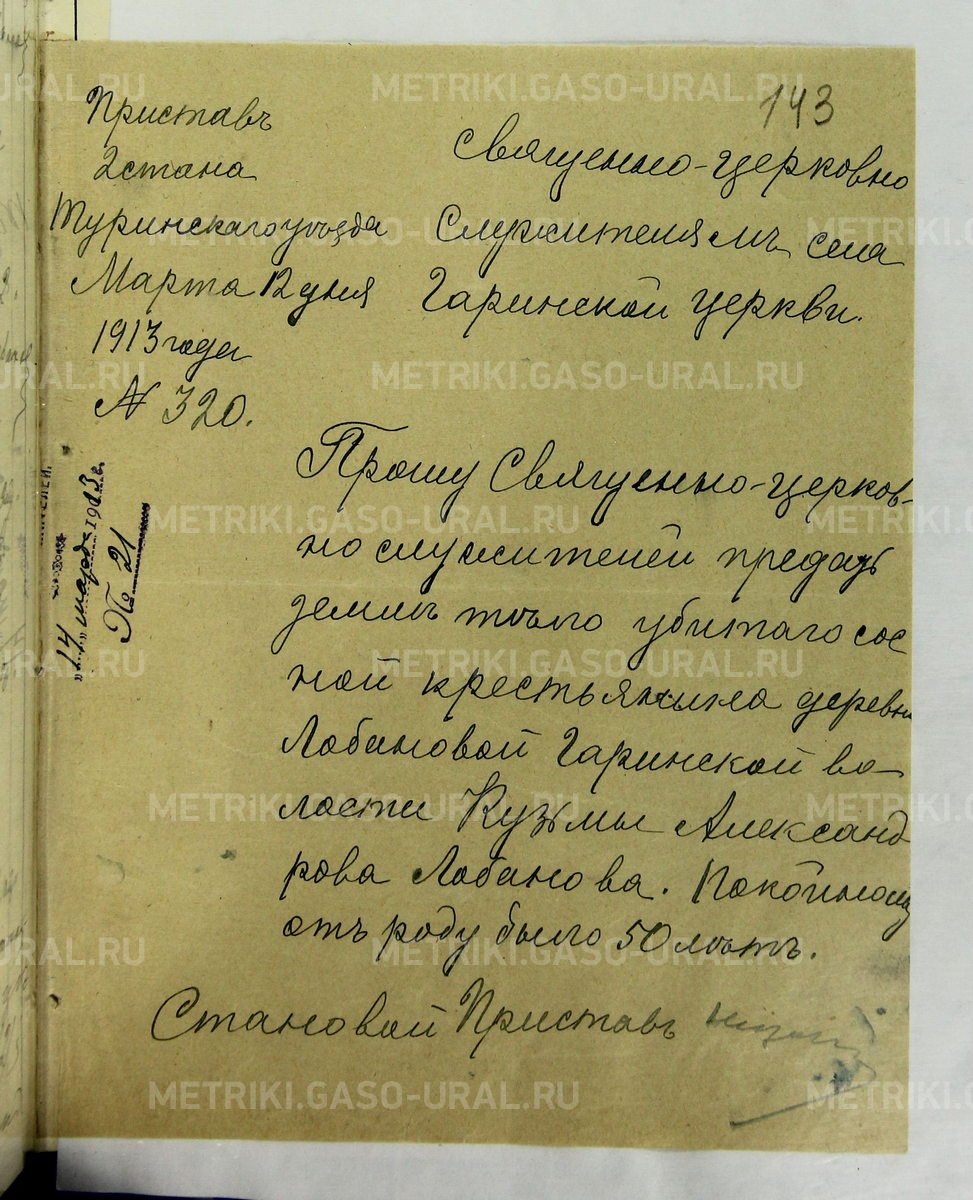 143
Приставъ
2 стана
Туринскаго уѣзда
Марта 12 дня
1913 года
№ 320.
Священно-церковно
Служителямъ села
Гаринской церкви.
14 март 1913 г.
№ 21
Прошу Священно-церков-
нослужителей предать
землѣ тѣло убитаго сос
ной крестьянина деревни
Лобановой Гаринской во-
лости Кузьмы Александ
рова Лобанова. Покойному
отъ роду было 50 лѣтъ.
Становой Приставъ
METRIKI.GASO-URAL.RU